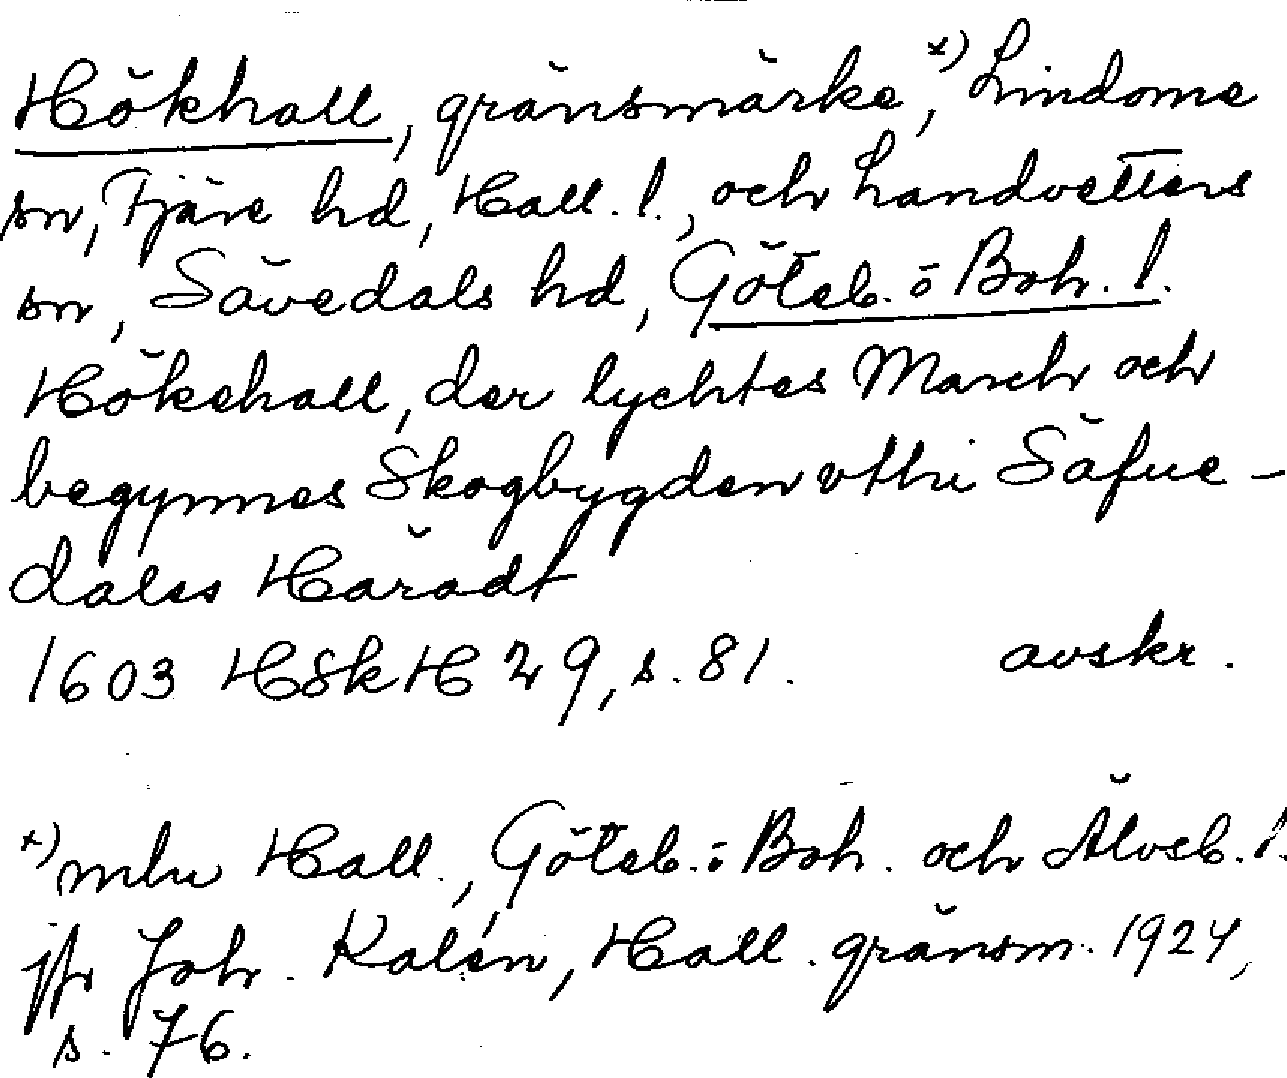 Hökhall, gränsmärke,*) Lindome
sn, Fjäre hd, Hall. l., och Landvetters
sn, Sävedals hd, Göteb. o Boh. l.
Hökehall, der lychtes March och
begynnes Skogbygden vthi Säfue-
dalss Häradt
1603 HSkH 29, s. 81. avskr.
*) mlu Hall., Göteb. o Boh. och Älvsb. l.
jfr Joh. Kalén, Hall. gränsm. 1924,
s. 76.